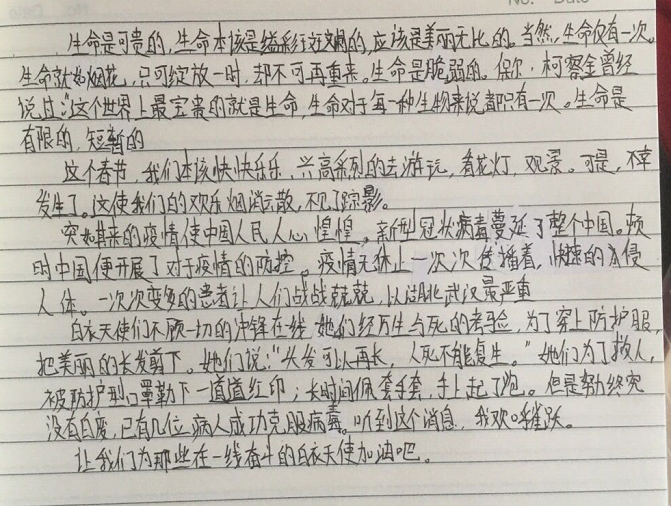 No. Date
生命是可贵的,生命本该是缤彩斑斓的,应该是美丽无比的。当然,生命仅有一次。
生命就如烟花,只可绽放一时,却不可再重来。生命是脆弱的。保尔·柯察金曾经
说过:"这个世界上最宝贵的就是生命,生命对于每一种生物来说都只有一次。生命是
有限的,短暂的
这个春节,我们本该快快乐乐、兴高采烈的去游玩,看花灯,观景。可是,不幸
发生了。这使我们的欢乐烟消云散,不见了踪影。
突如其来的疫情使中国人民人心惶惶,新型冠状病毒蔓延了整个中国。顿
时中国便开展了对于疫情的防控。疫情无休止一次次传播着,快速的入侵
人体。一次次变多的患者让人们战战兢兢,以湖北武汉最严重
白衣天使们不顾一切的冲锋在线,她们经历生与死的考验,为了穿上防护服,
把美丽的长发剪下。她们说:"头发可以再长,人死不能复生。"她们为了救人,
被防护型口罩勒下一道道红印;长时间佩套手套,手上起了泡。但是努力终究
没有白废,已有几位病人成功克服病毒。听到这个消息,我欢呼雀跃。
让我们为那些在一线奋斗的白衣天使加油吧。